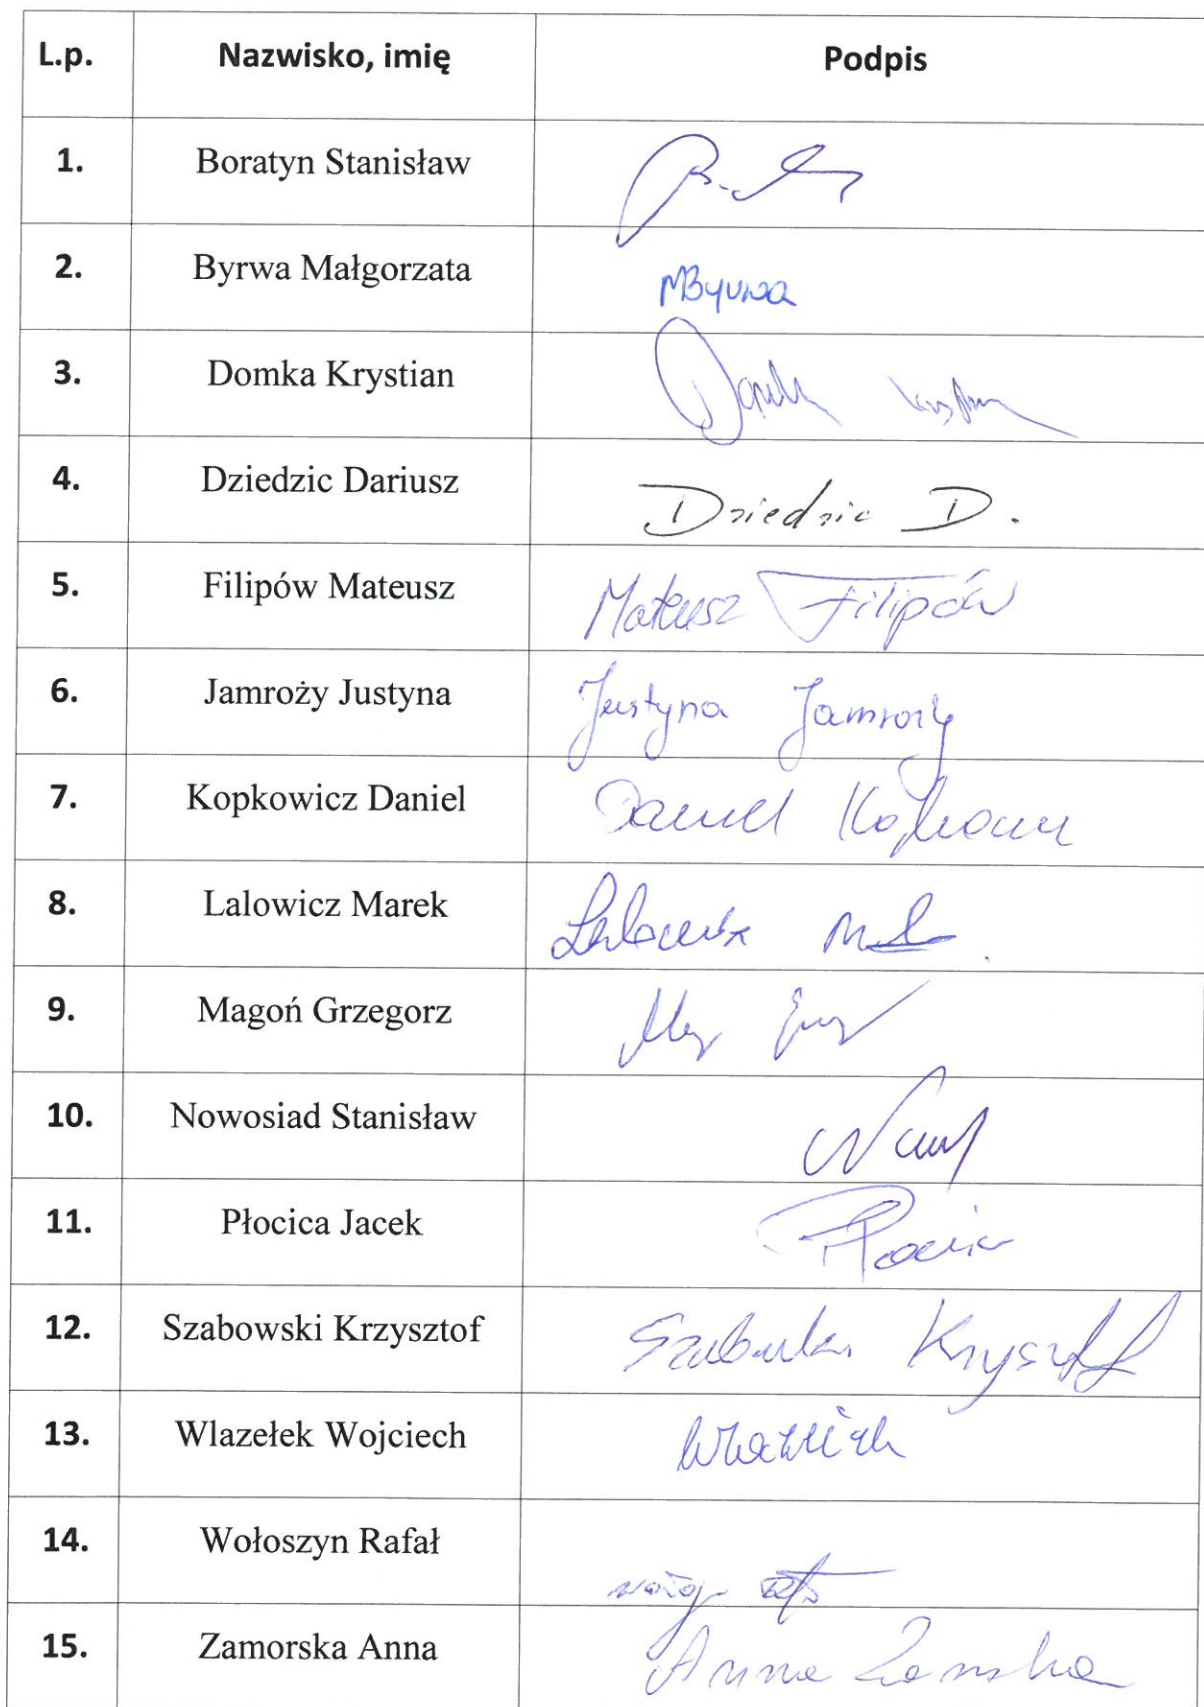 L.p. Nazwisko, imię Podpis
1. Boratyn Stanisław
2. Byrwa Małgorzata MByrwa
3. Domka Krystian
4. Dziedzic Dariusz Dziedzic D.
5. Filipów Mateusz Mateusz Filipów
6. Jamroży Justyna Justyna Jamroży
7. Kopkowicz Daniel Daniel
8. Lalowicz Marek
9. Magoń Grzegorz
10. Nowosiad Stanisław
11. Płocica Jacek
12. Szabowski Krzysztof
13. Wlazełek Wojciech
14. Wołoszyn Rafał
15. Zamorska Anna Anna